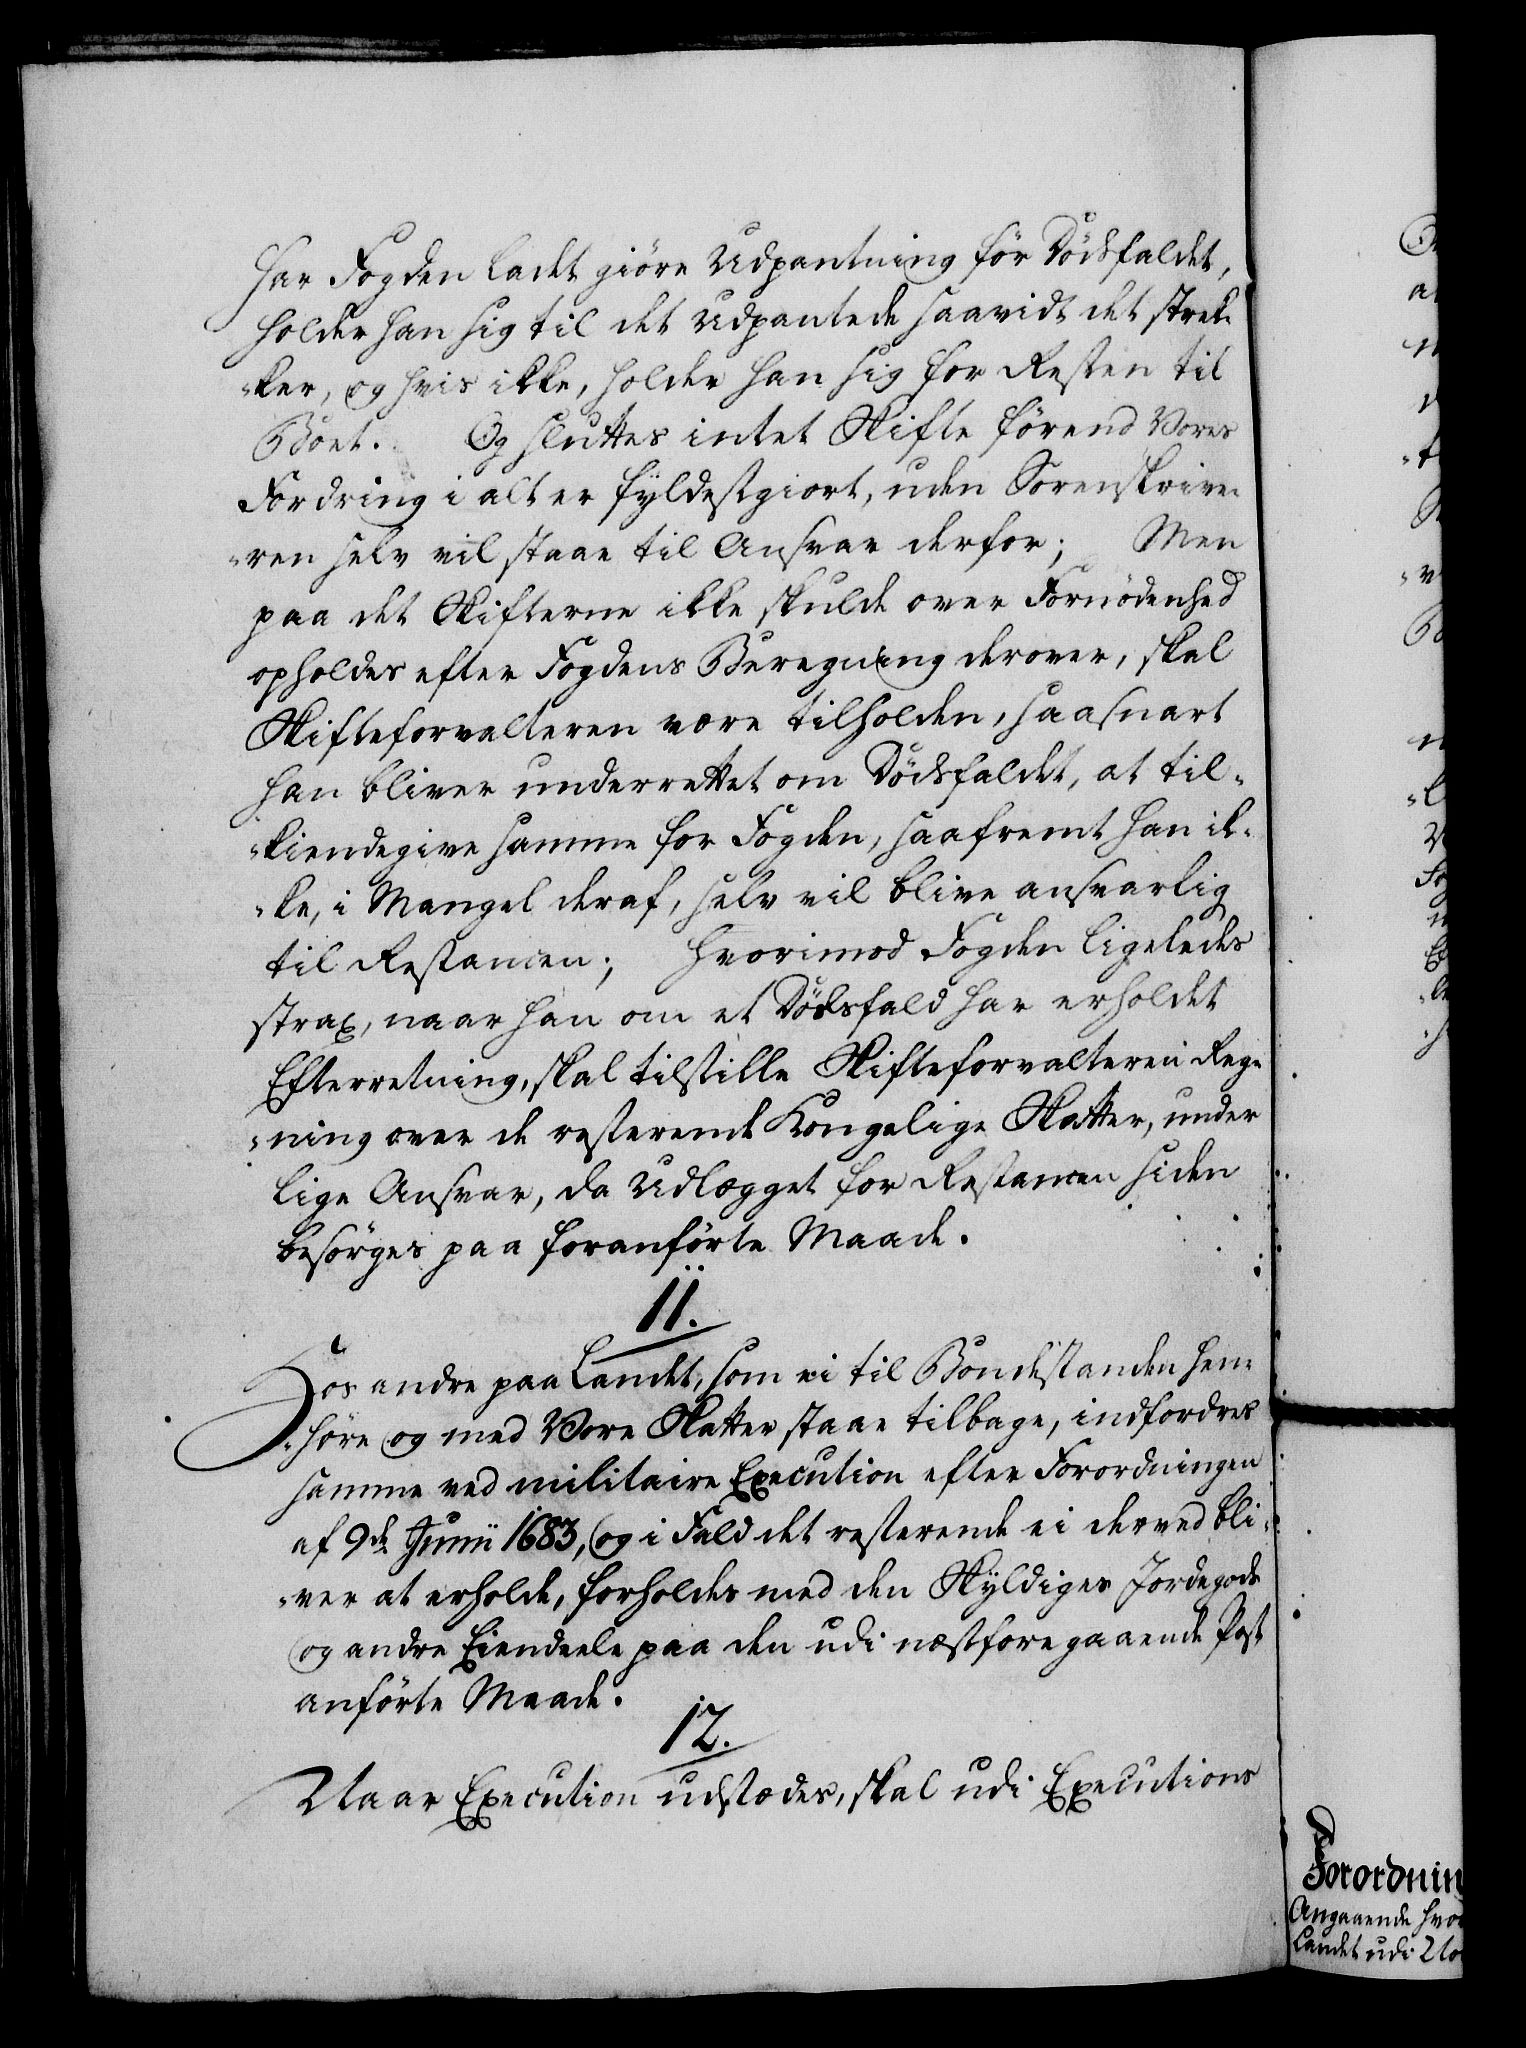 Har Fogden ladet giöre Udpantning för Dödsfaldet,
holder han sig til det Udpantede saavidt det strek-
-ker, og hvis ikke, holder han sig for Resten til
Boet. Og sluttes intet Skifte förend Vores
Fordring i alt er fyldestgiort, uden Sorenskrive-
-ren selv vil staae til Ansvar derfor; Men
paa det Skifterne ikke skulde over Fornödenhed
opholdes efter Fogdens Beregning derover, skal
Skifteforvalteren være tilholden, saasnart
han bliver underrettet om Dödsfaldet, at til-
-kiendegive samme for Fogden, saafremt han ik-
-ke, i Mangel deraf, selv vil blive ansvarlig
til Restancen; Hvorimod Fogden ligeledes
strax, naar han om et Dödsfald har erholdet
Efterretning, skal tilstille Skifteforvalteren Reg-
-ning over de resterende Kongelige Skatter, under
lige Ansvar, da Udlægget for Restancen siden
besörges paa foranförte Maade.
11.
Hos andre paa Landet, som ei til Bondestanden hen-
-höre og med Vore Skatter staae tilbage, indfordres
samme ved militaire Execution efter Forordningen
af 9de Junii 1683, og i Fald det resterende ei derved bli-
-ver at erholde, forholdes med den Skyldiges Jordegods
og andre Eiendeele paa den udi næstforegaaende Post
anförte Maade.
12.
Naar Execution udstædes, skal udi Executions
Forordnin
Angaaende hvo
Landet udi No